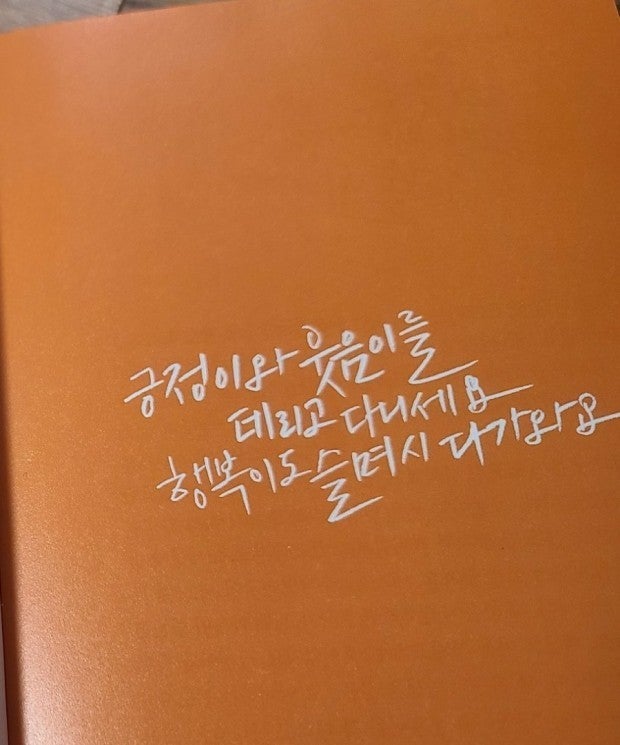 긍정이와 웃음이를
데리고 다니세요
행복이도 슬며시 다가와요